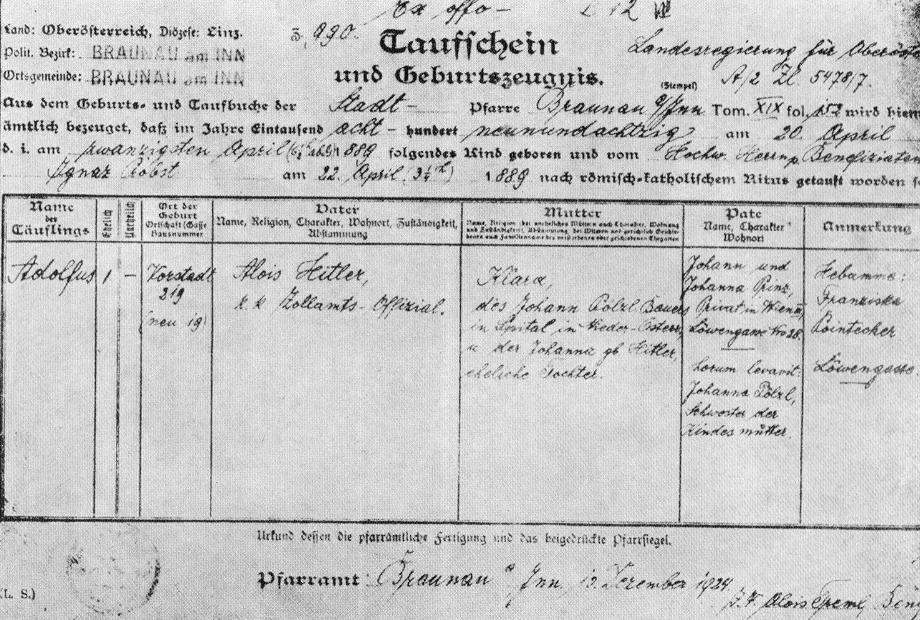 Ex offo
Land: Oberösterreich, Diözese: Linz.
Z. 990.
Taufschein
Landesregierung für Oberöster
Polit. Bezirk: BRAUNAU am INN
und Geburtszeugnis.
Ortsgemeinde: BRAUNAU am INN
(Stempel)
A/2 Zl 5478/7
Aus dem Geburts- und Taufbuche der Stadt- Pfarre Braunau a/Inn Tom. XIX fol. 152 wird hiem
ämtlich bezeugt, daß im Jahre Eintausend acht- hundert neunundachtzig am 20. April
d. i. am zwanzigsten April 1889 folgendes Kind geboren und vom Hochw. Herrn Benefiziaten
Ignaz Probst am 22. April, 1889 nach römisch-katholischem Ritus getauft worden se
Name des Täuflings
Ehelich
Unehelich
Ort der Geburt Ortschaft Hausnummer
Vater
Name, Religion, Charakter, Wohnort, Zuständigkeit, Abstammung
Mutter
Pate
Name, Charakter Wohnort
Anmerkung
Adolfus
1
–
Vorstadt
219
(neu 19)
Alois Hitler,
k. k. Zollamts-Offizial.
Klara,
des Johann Pölzl Bauers
in Spital in Nieder-Österr.
u. der Johanna gb Hitler
eheliche Tochter.
Johann und
Johanna Prinz,
Privat in Wien III,
Löwengasse No 28.
horum levante:
Johanna Pölzl,
Schwester der
Kindesmutter.
Hebamme:
Franziska
Pointecker
Löwengasse.
Urkund dessen die pfarrämtliche Fertigung und das beigedrückte Pfarrsiegel.
Pfarramt: Braunau a Inn, 12 Dezember 1924
(L. S.)
Alois